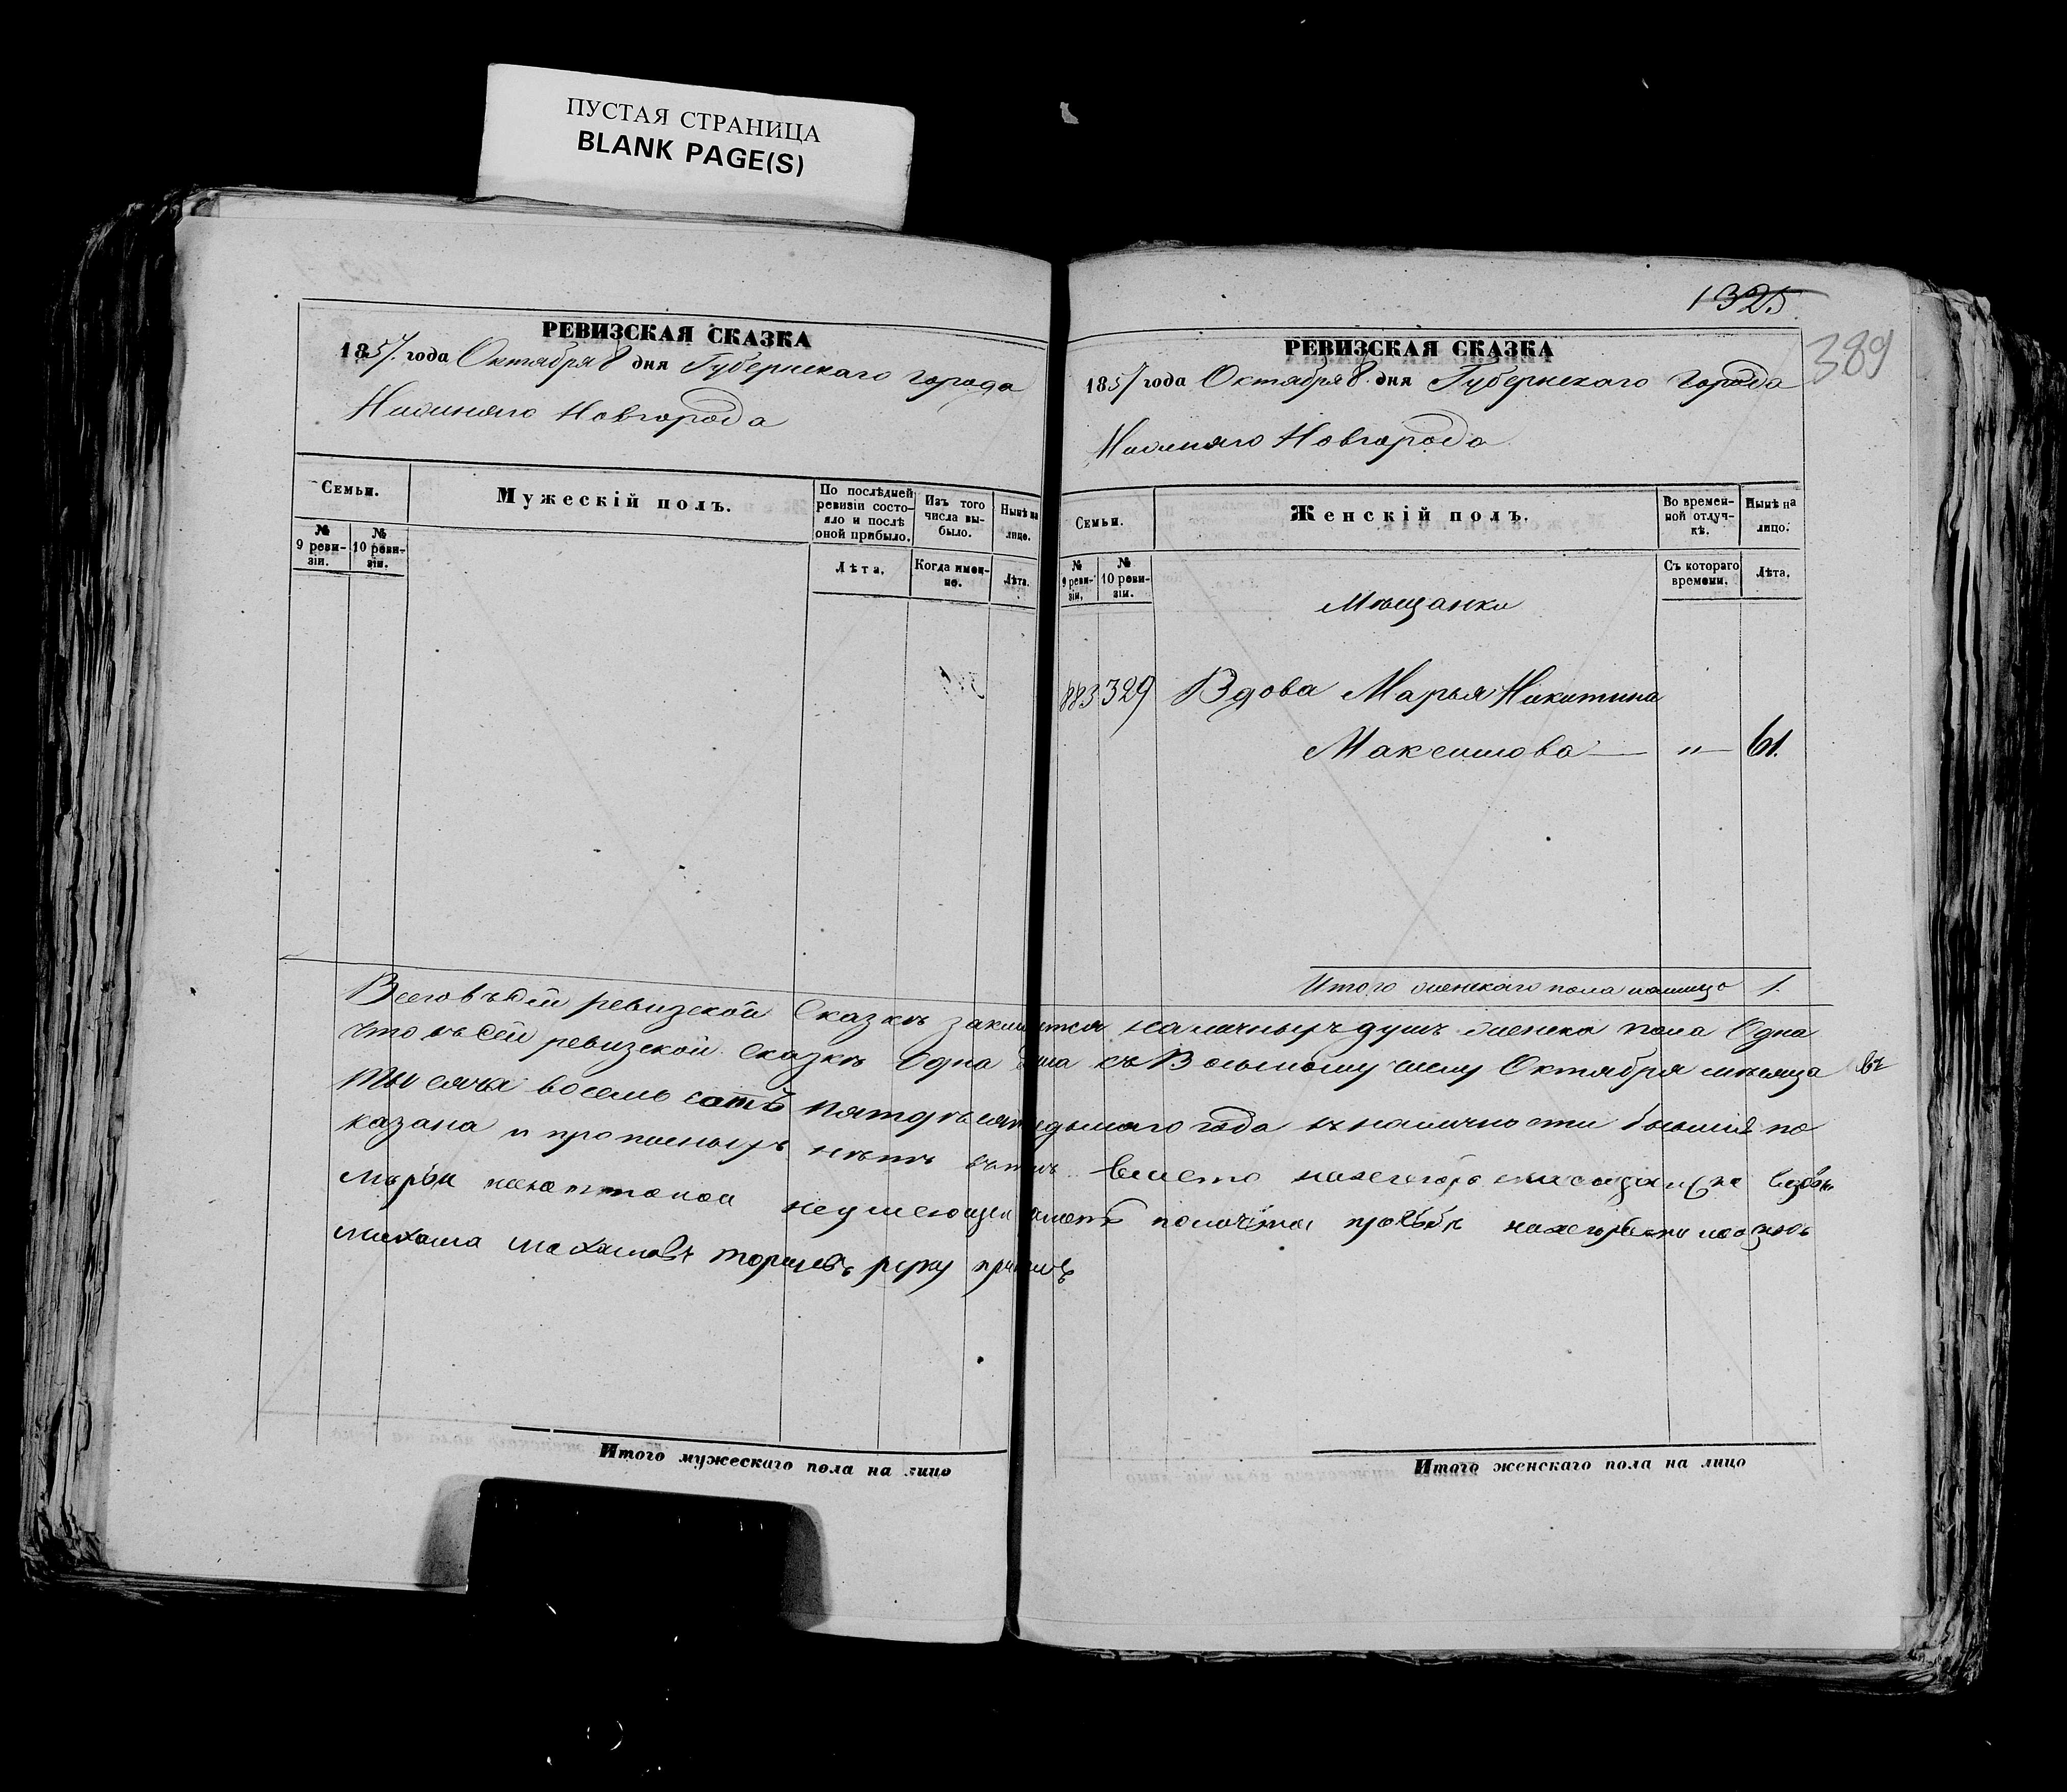 ПУСТАЯ СТРАНИЦА
BLANK PAGE(S)
РЕВИЗСКАЯ СКАЗКА
1857. года Октября 8 дня Губернскаго города
Нижняго Новгорода
Семьи.
Мужескій полъ.
По послѣдней ревизіи состояло и послѣ оной прибыло.
Изъ того числа выбыло.
Нынѣ на лицо.
№ 9 ревизіи.
№ 10 ревизіи.
Лѣта.
Когда именно.
Лѣта.
Итого мужескаго пола на лицо
1325
389
РЕВИЗСКАЯ СКАЗКА
1857 года Октября 8. дня Губернскаго города
Нижняго Новгорода
Семьи.
Женскій полъ.
Во временной отлучкѣ.
Нынѣ на лицо.
№ 9 ревизіи.
№ 10 ревизіи.
Съ котораго времени.
Лѣта.
Мѣщанки
883 329 Вдова Марья Никитина
Максимова — " — 61.
Итого женскаго пола налицо 1.
Всего въ сей ревизской Сказкѣ наличныхъ душъ женска пола Одна
что въ сей ревизской Сказкѣ Одна душа къ Восьмому числу Октября мѣсяца
тысяча восемь сотъ пятдесят седьмаго года къ наличности бывшія по
казана и прописныхъ нѣтъ вмѣсто
неумеющей
руку
Итого женскаго пола на лицо